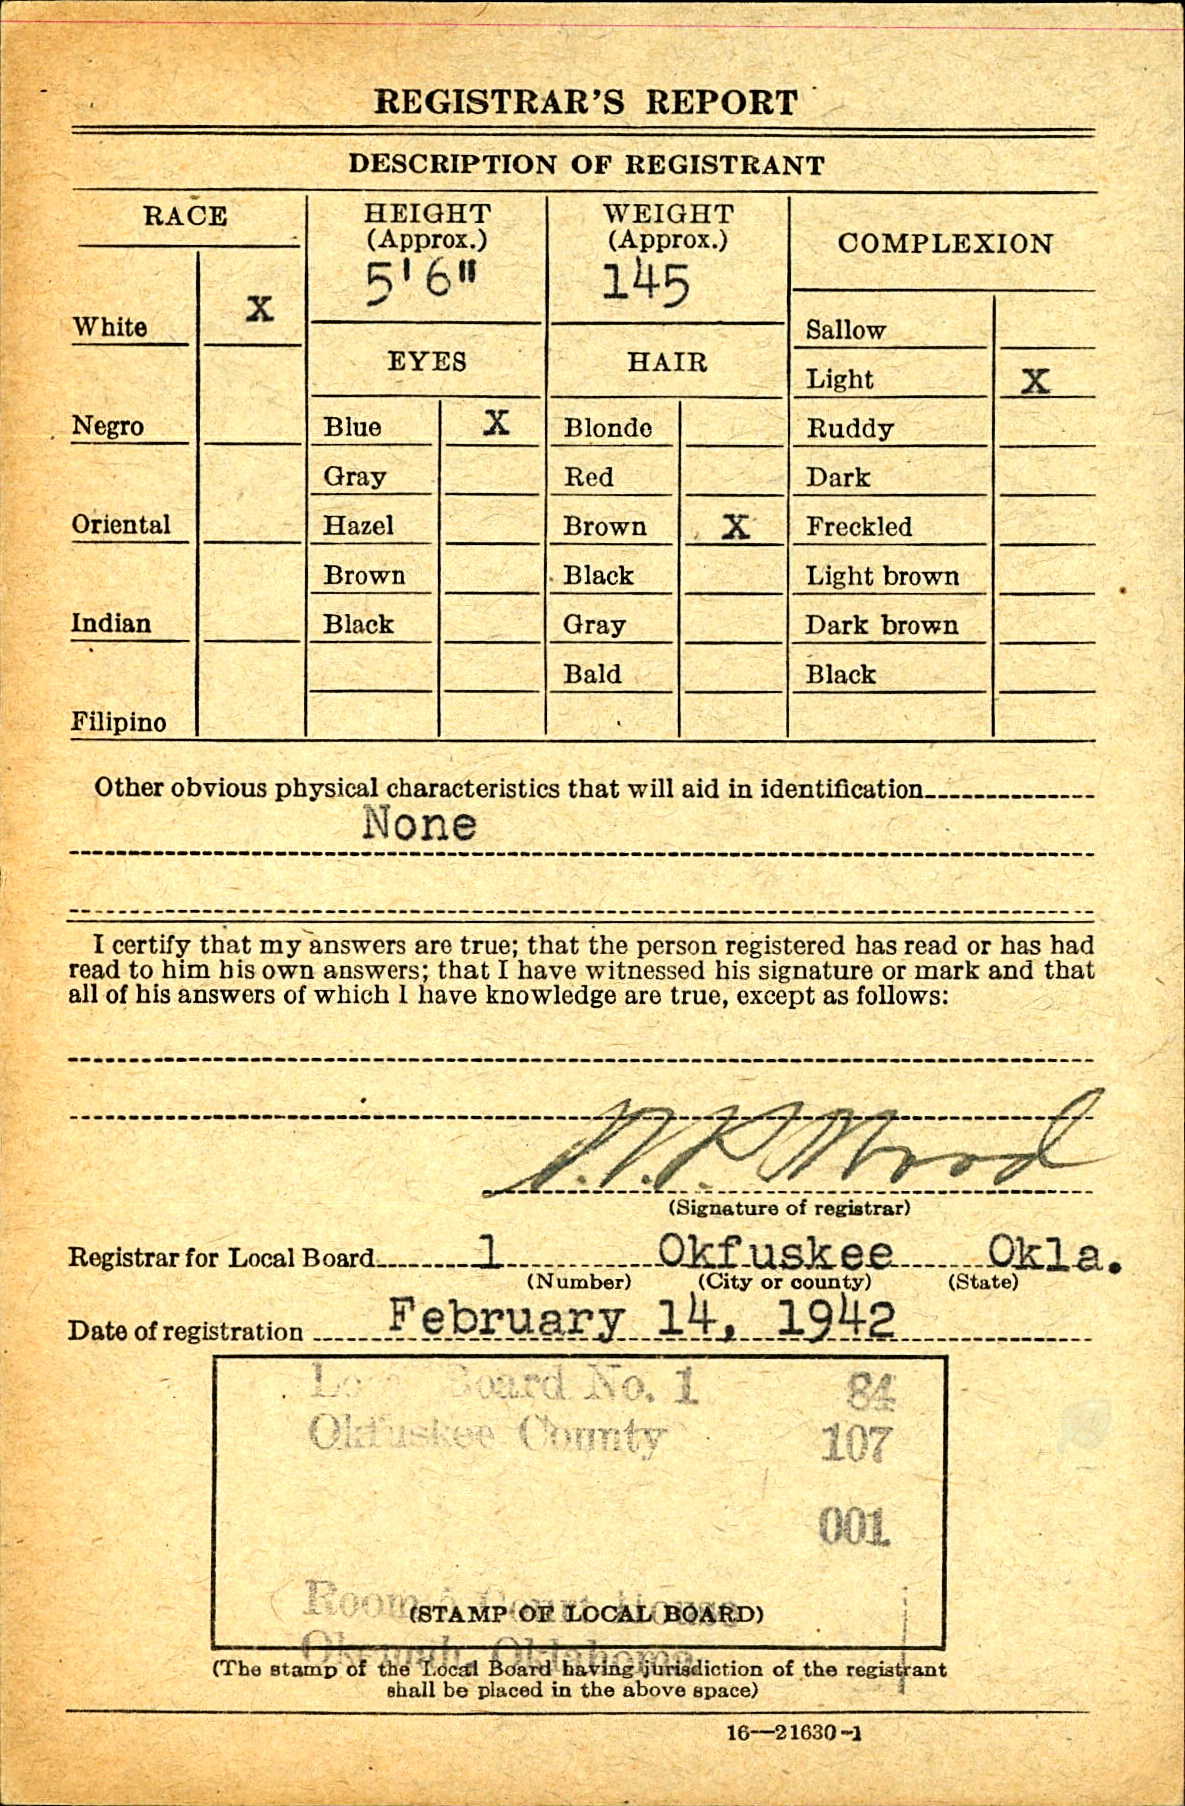 REGISTRAR'S REPORT
DESCRIPTION OF REGISTRANT
RACE
White X
Negro
Oriental
Indian
Filipino
HEIGHT
(Approx.)
5'6"
EYES
Blue X
Gray
Hazel
Brown
Black
WEIGHT
(Approx.)
145
HAIR
Blonde
Red
Brown X
Black
Gray
Bald
COMPLEXION
Sallow
Light X
Ruddy
Dark
Freckled
Light brown
Dark brown
Black
Other obvious physical characteristics that will aid in identification
None
I certify that my answers are true; that the person registered has read or has had
read to him his own answers; that I have witnessed his signature or mark and that
all of his answers of which I have knowledge are true, except as follows:
Wood
(Signature of registrar)
Registrar for Local Board 1 Okfuskee Okla.
(Number) (City or county) (State)
Date of registration February 14, 1942
Board No. 1 84
Okfuskee County 107
001
Room Court House
(STAMP OF LOCAL BOARD)
Okemah, Oklahoma
(The stamp of the Local Board having jurisdiction of the registrant
shall be placed in the above space)
16—21630-1